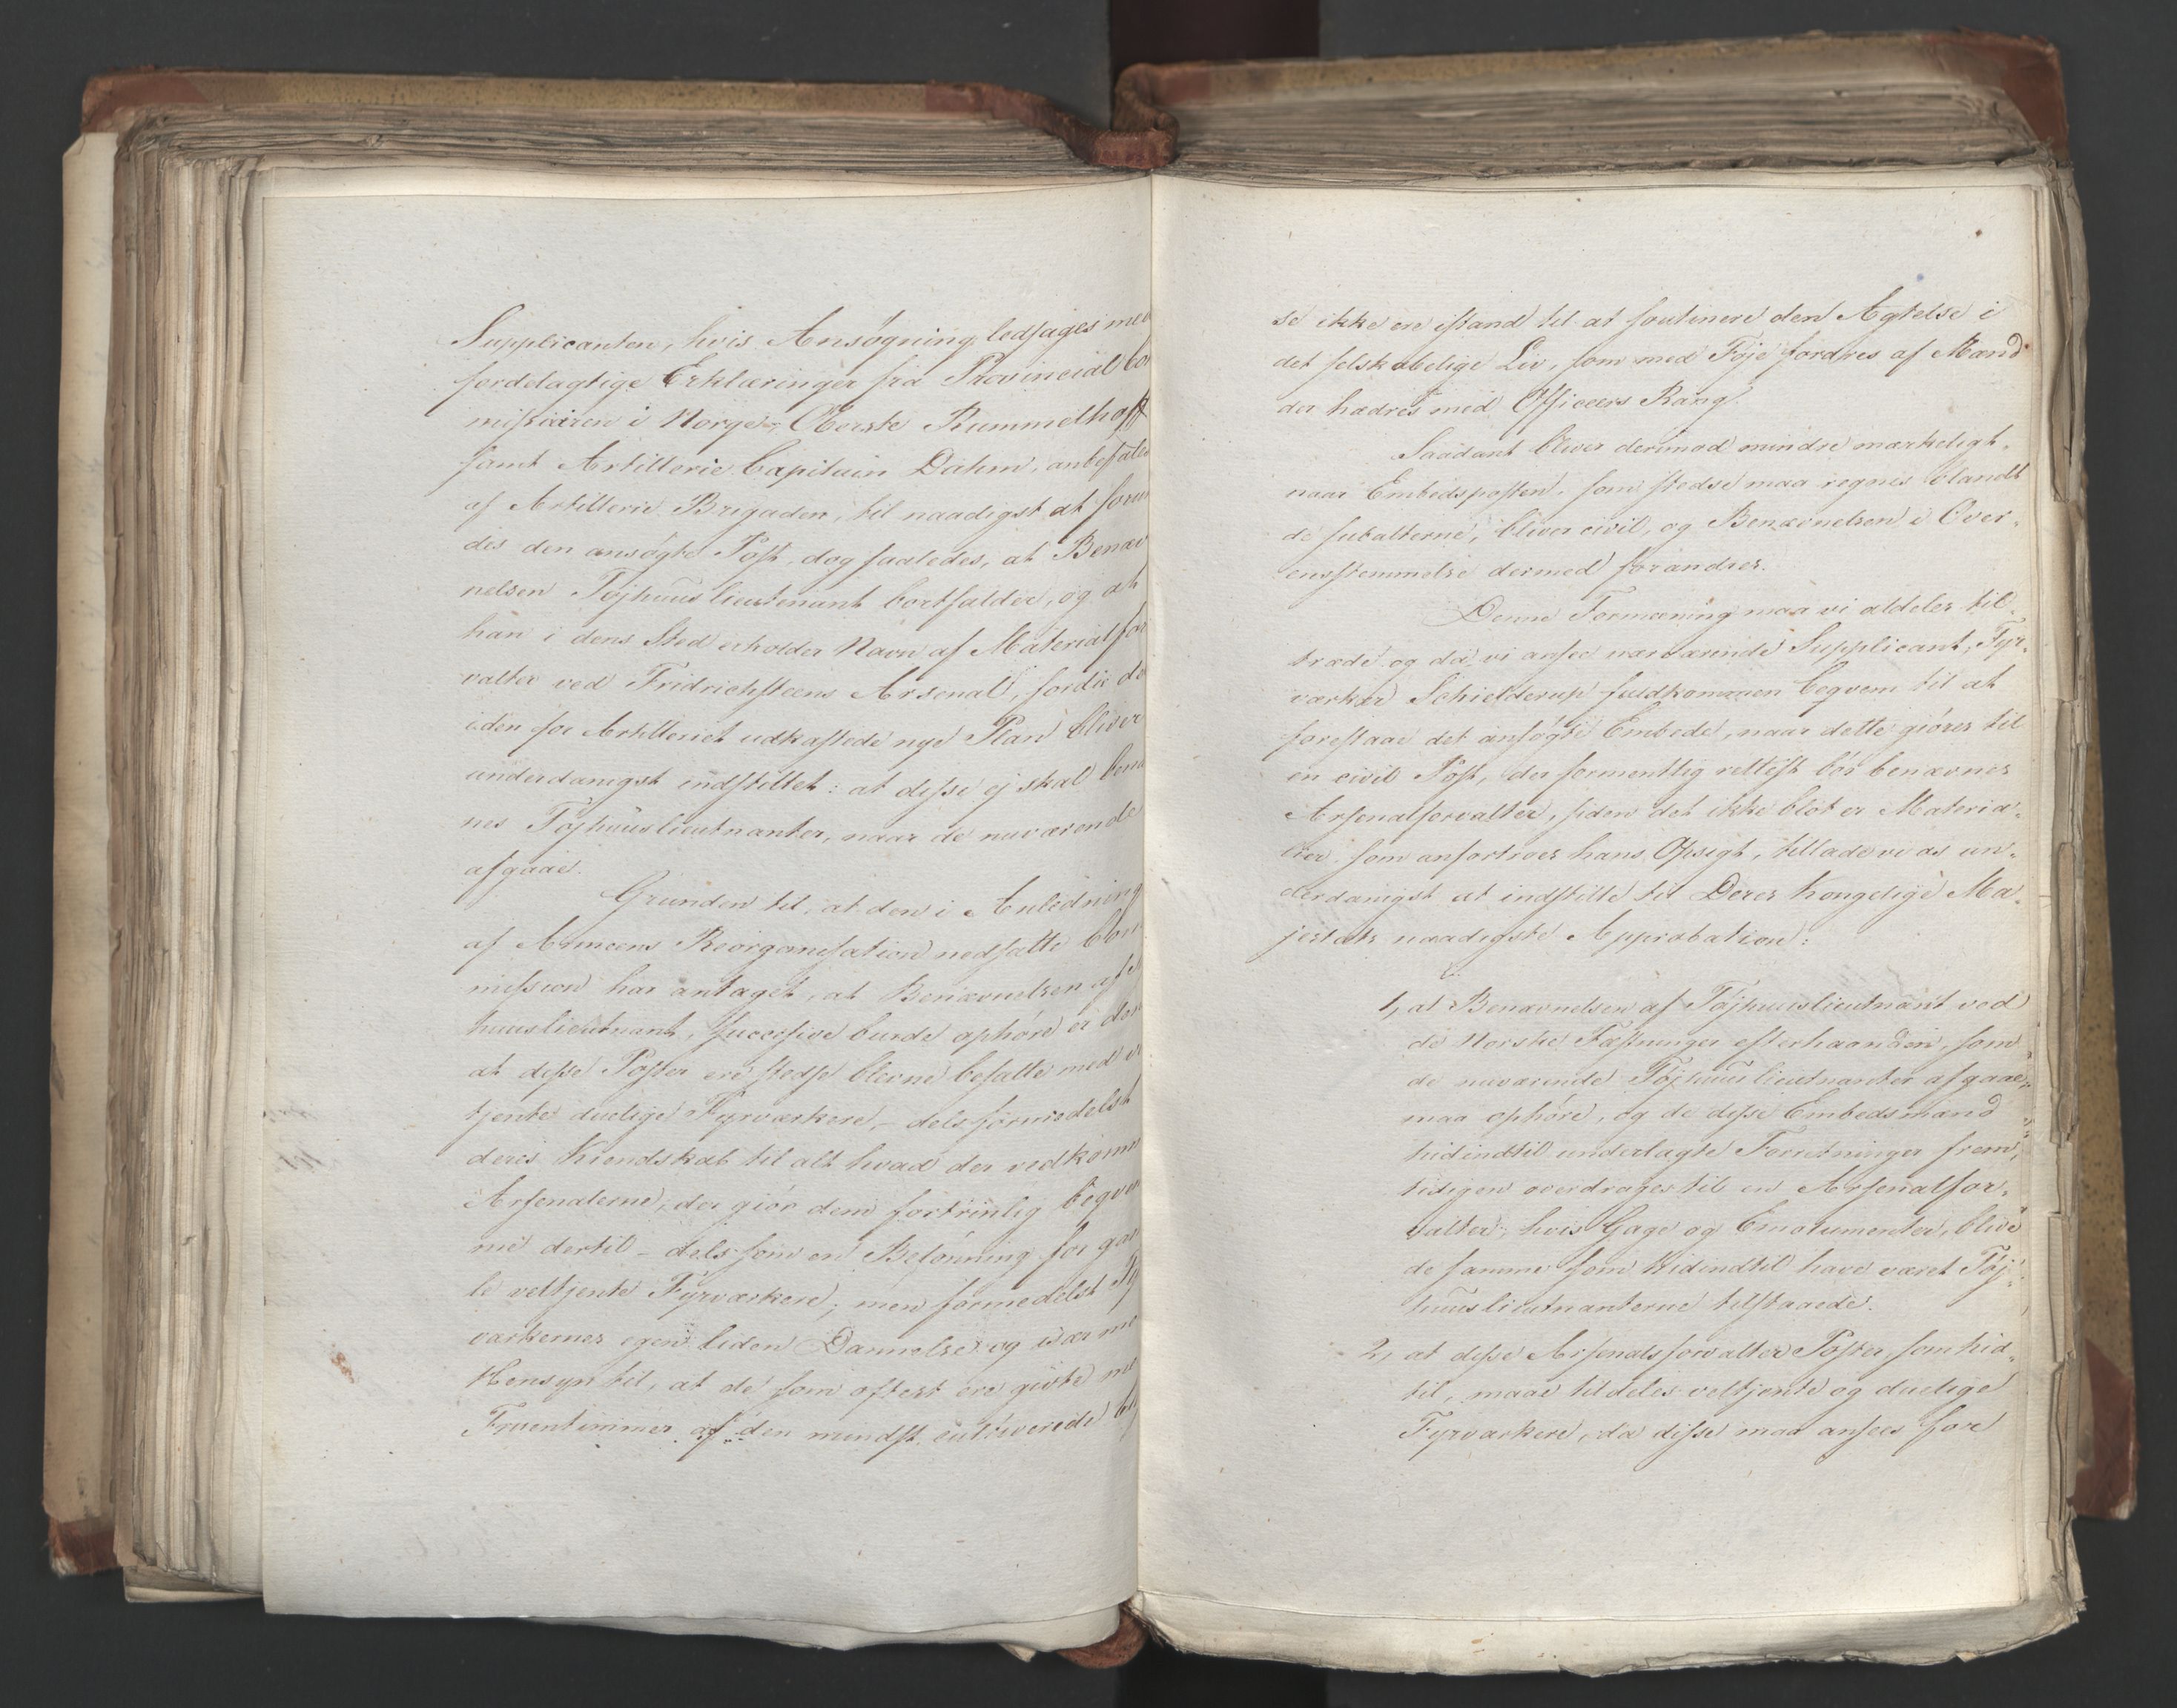 Supplicanten, hvis Ansøgning ledsages med
fordelagtige Erklæringer fra Provincial Co
missairen i Norge, Oberste Rummelhoff
samt Artillerie Capitain Dahm, anbefales
af Artillerie Brigaden, til naadigst at forun
des den ansøgte Post, dog saaledes, at Benæv
nelsen Töjhuuslieutenant bortfalder, og at
han i dens Sted erholder Navn af Materialfor
valter ved Fridrichsteens Arsenal, fordie de
i den for Artilleriet udkastede nye Plan bliver
underdanigst indstillet: at disse ej skal benæ
nes Töjhuuslieutnanter, naar de nuværende
afgaae.
Grunden til, at den i Anledning
af Armeens Reorganisation nedsatte Com
mission har antaget, at Benævnelsen af
huuslieutnant, successive burde ophøre er den
at disse Poster ere stedse blevne besatte med v
tjente duelige Fyrværkere, – dels formedelst
deres Kiendskab til alt hvad der vedkomm
Arsenalerne, der giör dem fortrinlig beqvem
me dertil – dels som en Belønning for gam
le veltjente Fyrværkere; men formedelst Fy
værkernes egen liden Dannelse og især me
Hensyn til, at de som oftest ere givte me
Fruentimmer af den mindst cultiverede Cl
se ikke ere istand til at soutinere den Agtelse i
det selskabelige Liv, som med Föje fordres af Mænd
der hædres med Officeers Rang.
Saadant bliver derimod mindre mærkeligt,
naar Embedsposten, som stedse maa regnes blandt
de subalterne, bliver civil, og Benævnelsen i Over-
ensstemmelse dermed forandres.
Denne Formeening maa vi aldeles til-
træde og da vi ansee nærværende Supplicant, Fyr-
værker Schielderup fuldkommen beqvem til at
forestaae det ansøgte Embede, naar dette giöres til
en civil Post, der formentlig rettest bör benævnes
Arsenalforvalter, siden det ikke blot er Materia-
lier som anfortroes hans Opsigt, tillade vi os un-
derdanigst at indstille til Deres Kongelige Ma-
jestæts naadigste Approbation:
1, at Benævnelsen af Töjhuuslieutnant ved
de Norske Fæstninger efterhaanden, som
de nuværende Töjhuuslieutnanter afgaae,
maa ophøre, og de disse Embedsmænd
hidindtil underlagte Forretninger frem-
tidigen overdrages til en Arsenalfor-
valter, hvis Gage og Emolumenter, blive
de samme som hidindtil have været Töj-
huuslieutnanterne tilstaaede.
2, at disse Arsenalsforvalter Poster, som hid-
til, maae tildeles veltjente og duelige
Fyrværkere, da disse maa ansees for